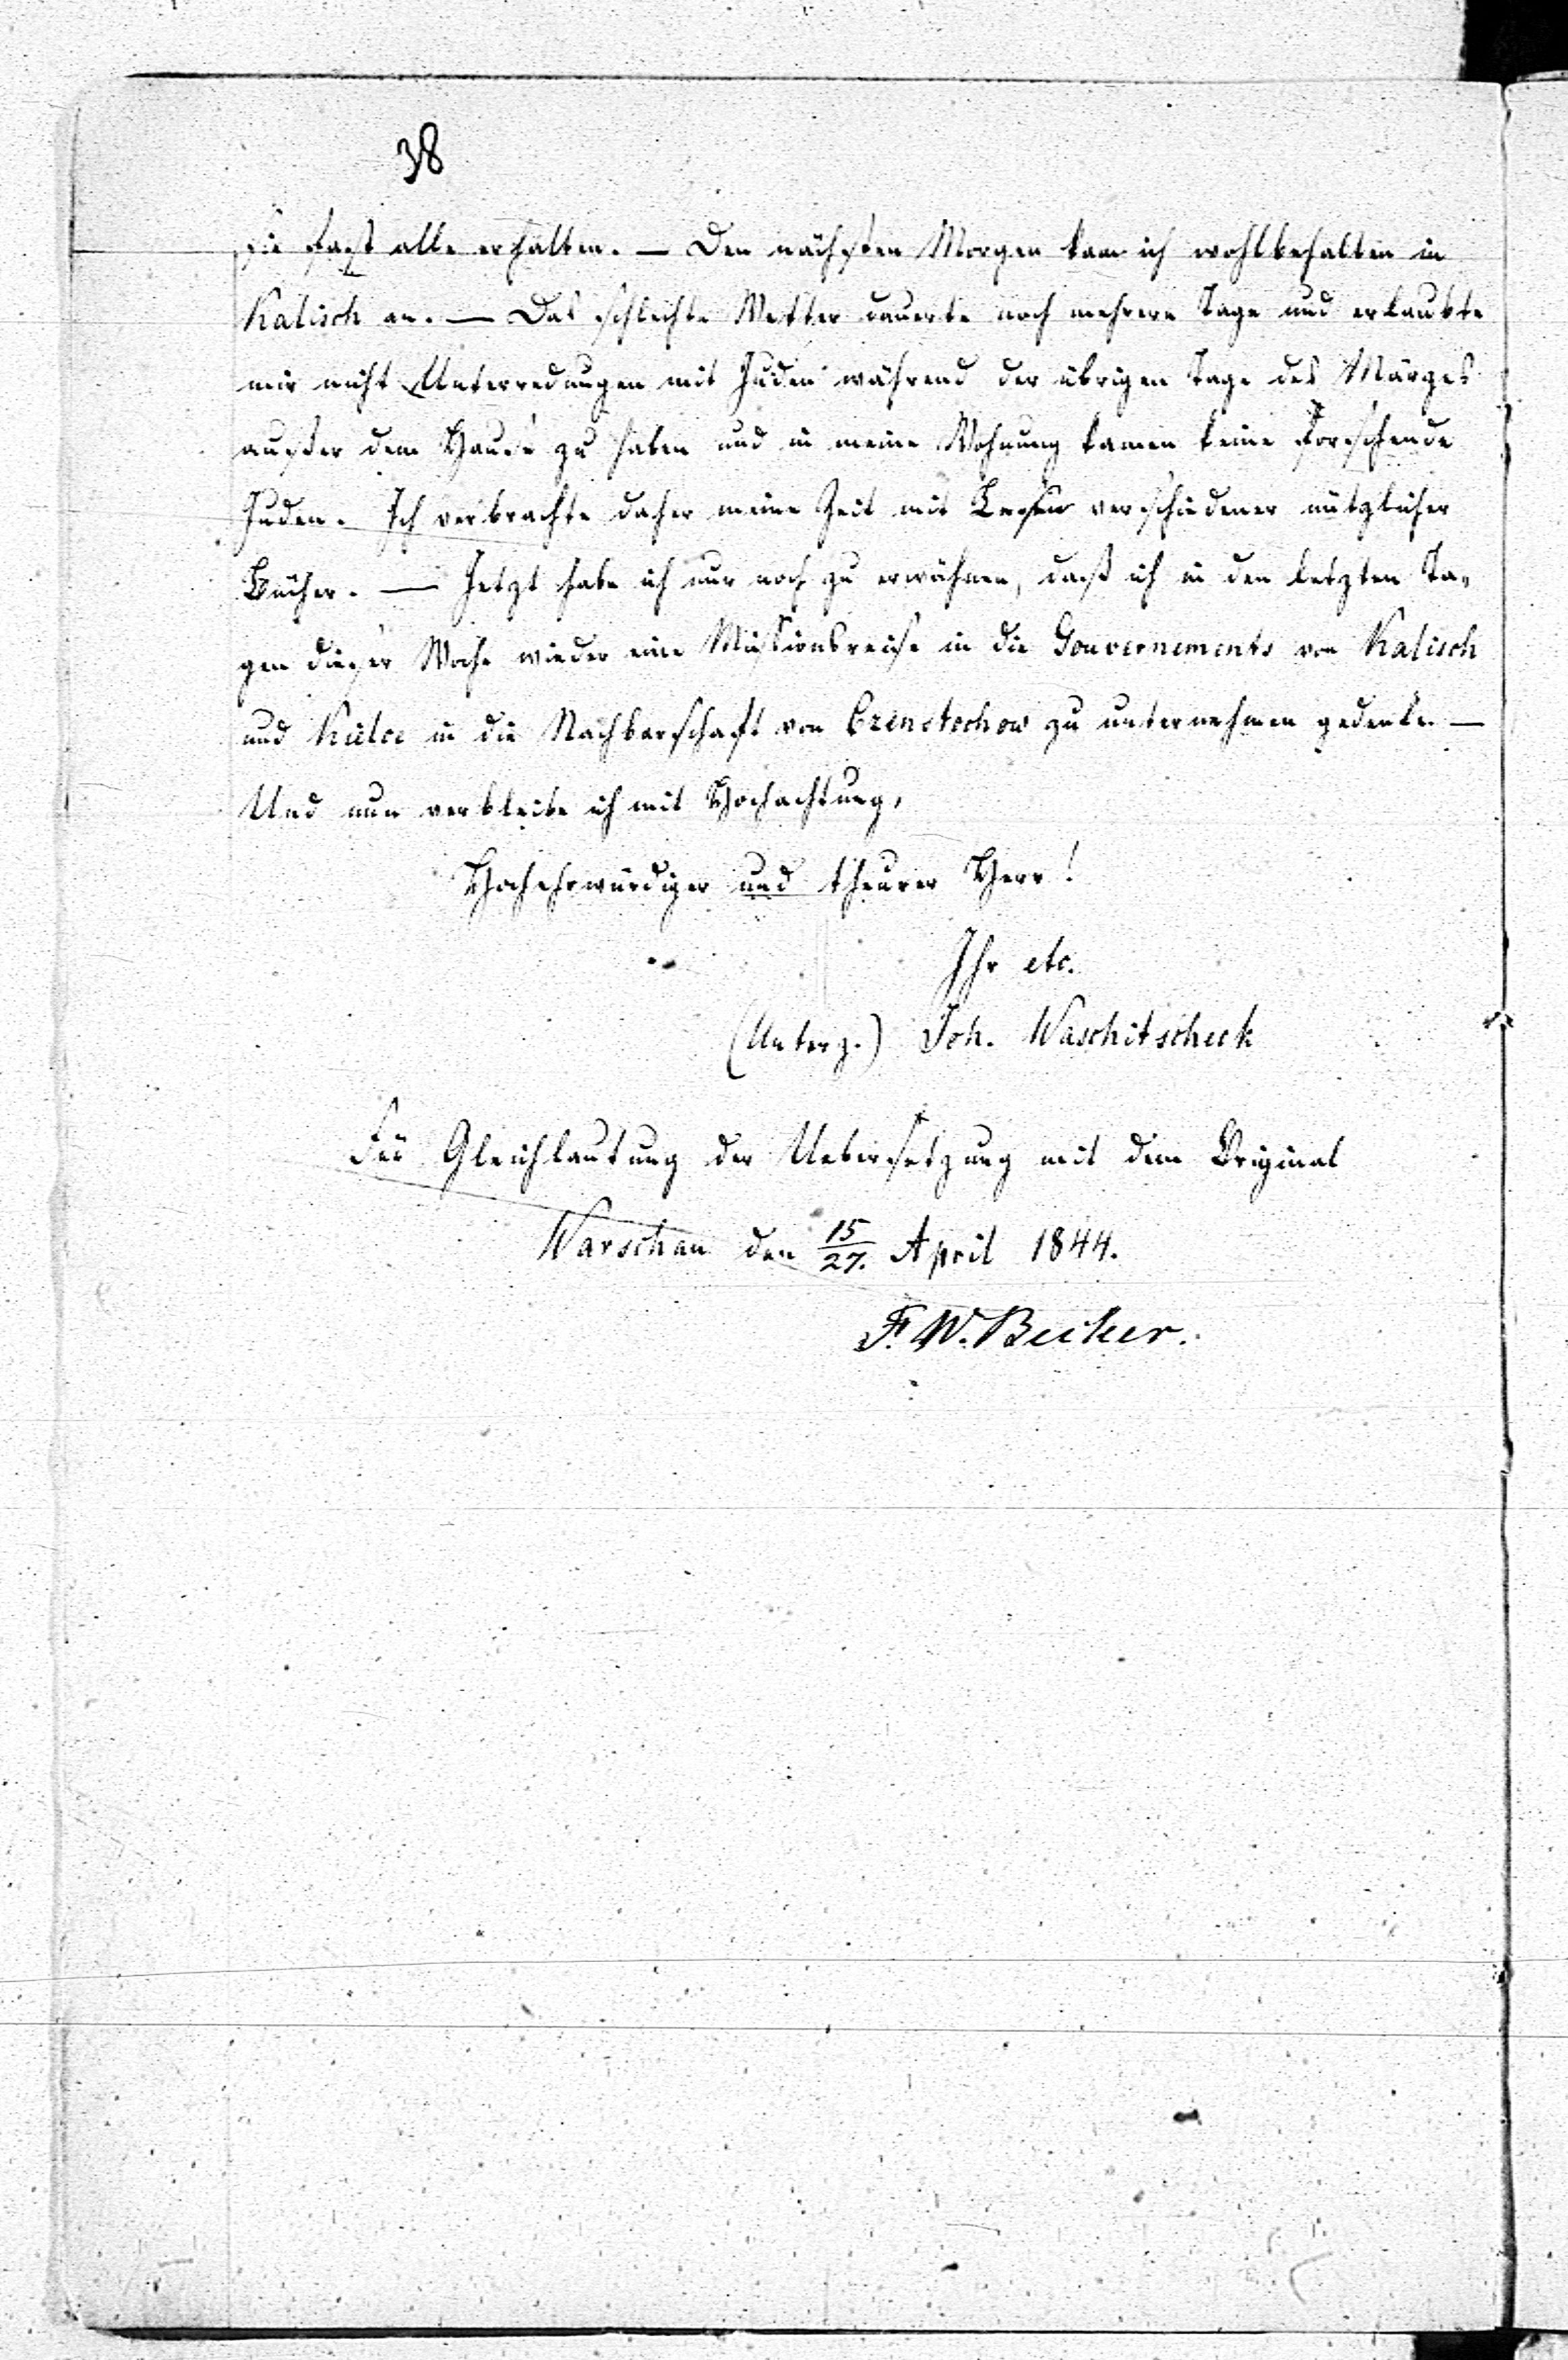 38
sie fast alle erhalten. — Den nächsten Morgen kam ich wohlbehalten in
Kalisch an. — Das schlechte Wetter dauerte noch mehrere Tage und erlaubte
mir nicht Unterredungen mit Juden während der übrigen Tage des Märzes
außer dem Hause zu haben und in meine Wohnung kamen keine forschende
Juden. Ich verbrachte daher meine Zeit mit Lesen verschiedener nützlicher
Bücher. — Jetzt habe ich nur noch zu erwähnen, daß ich in den letzten Ta-
gen dieser Woche wieder eine Missionsreise in die Gouvernements von Kalisch
und Kielce in die Nachbarschaft von Czenstochow zu unternehmen gedenke. —
Und nun verbleibe ich mit Hochachtung,
Hochehrwürdiger und theurer Herr!
Ihr etc.
(Unterz.) Joh. Waschitscheck
Für Gleichlautung der Uebersetzung mit dem Original
Warschau den 15/27. April 1844.
F. W. Becker.